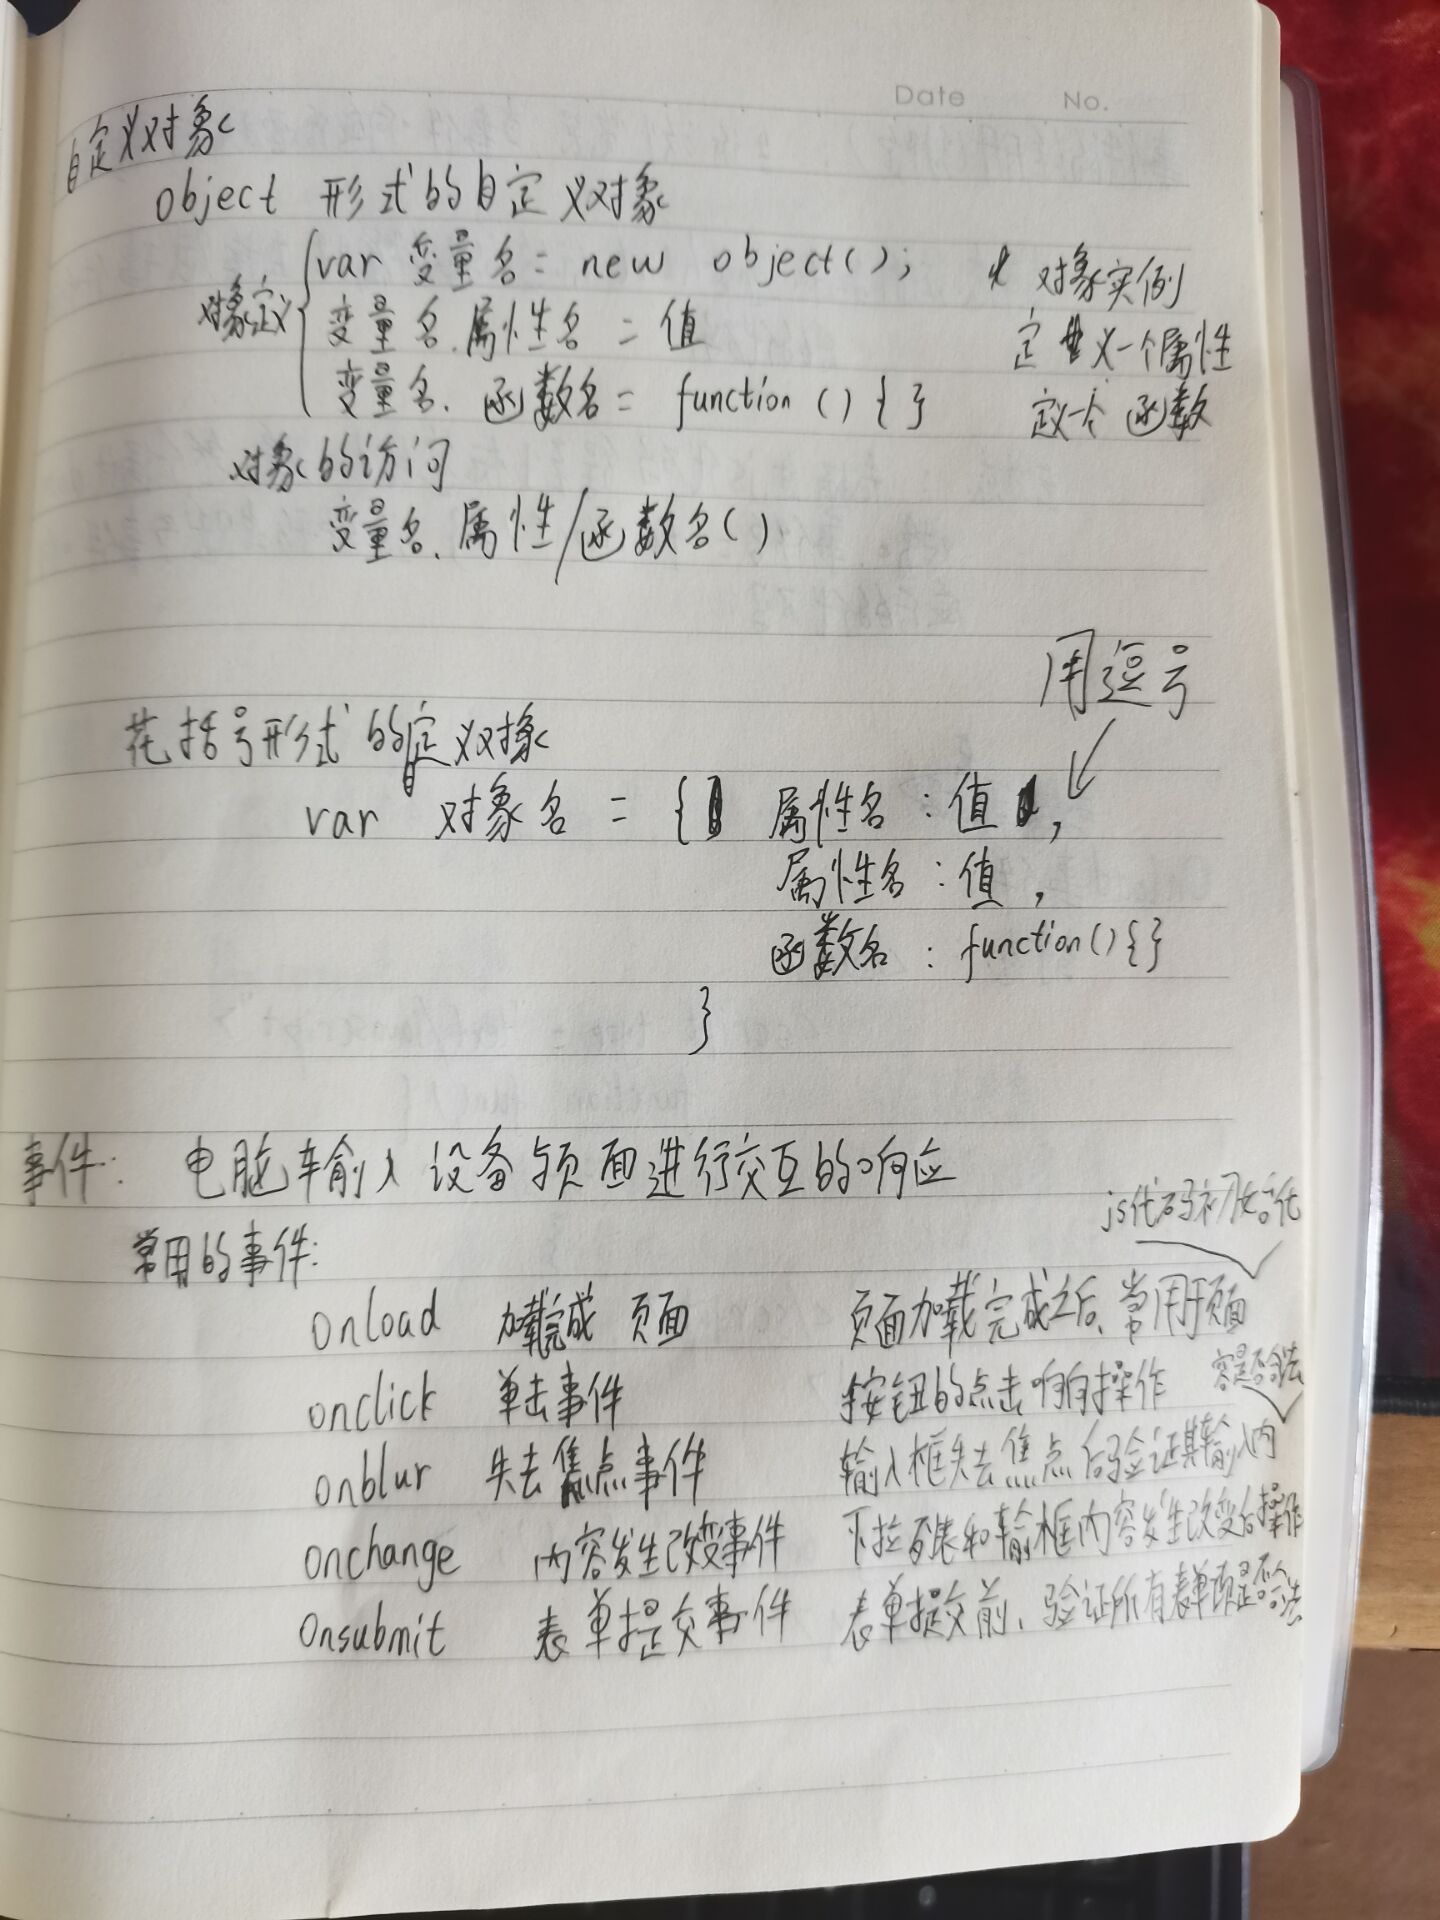 Date No.
自定义对象
object 形式的自定义对象
var 变量名 = new object(); 对象实例
对象定义
变量名.属性名 = 值 定义一个属性
变量名.函数名 = function () { } 定义一个函数
对象的访问
变量名.属性/函数名()
用逗号
花括号形式的自定义对象
var 对象名 = { 属性名 : 值 ,
属性名 : 值 ,
函数名 : function() { }
}
事件: 电脑输入设备与页面进行交互的响应
js代码初始化
常用的事件:
onload 加载完成 页面 页面加载完成之后、常用于页面
onclick 单击事件 按钮的点击响应操作
容是否合法
onblur 失去焦点事件 输入框失去焦点后验证其输入内
onchange 内容发生改变事件 下拉列表和输框内容发生改变后操作
onsubmit 表单提交事件 表单提交前、验证所有表单项是否合法